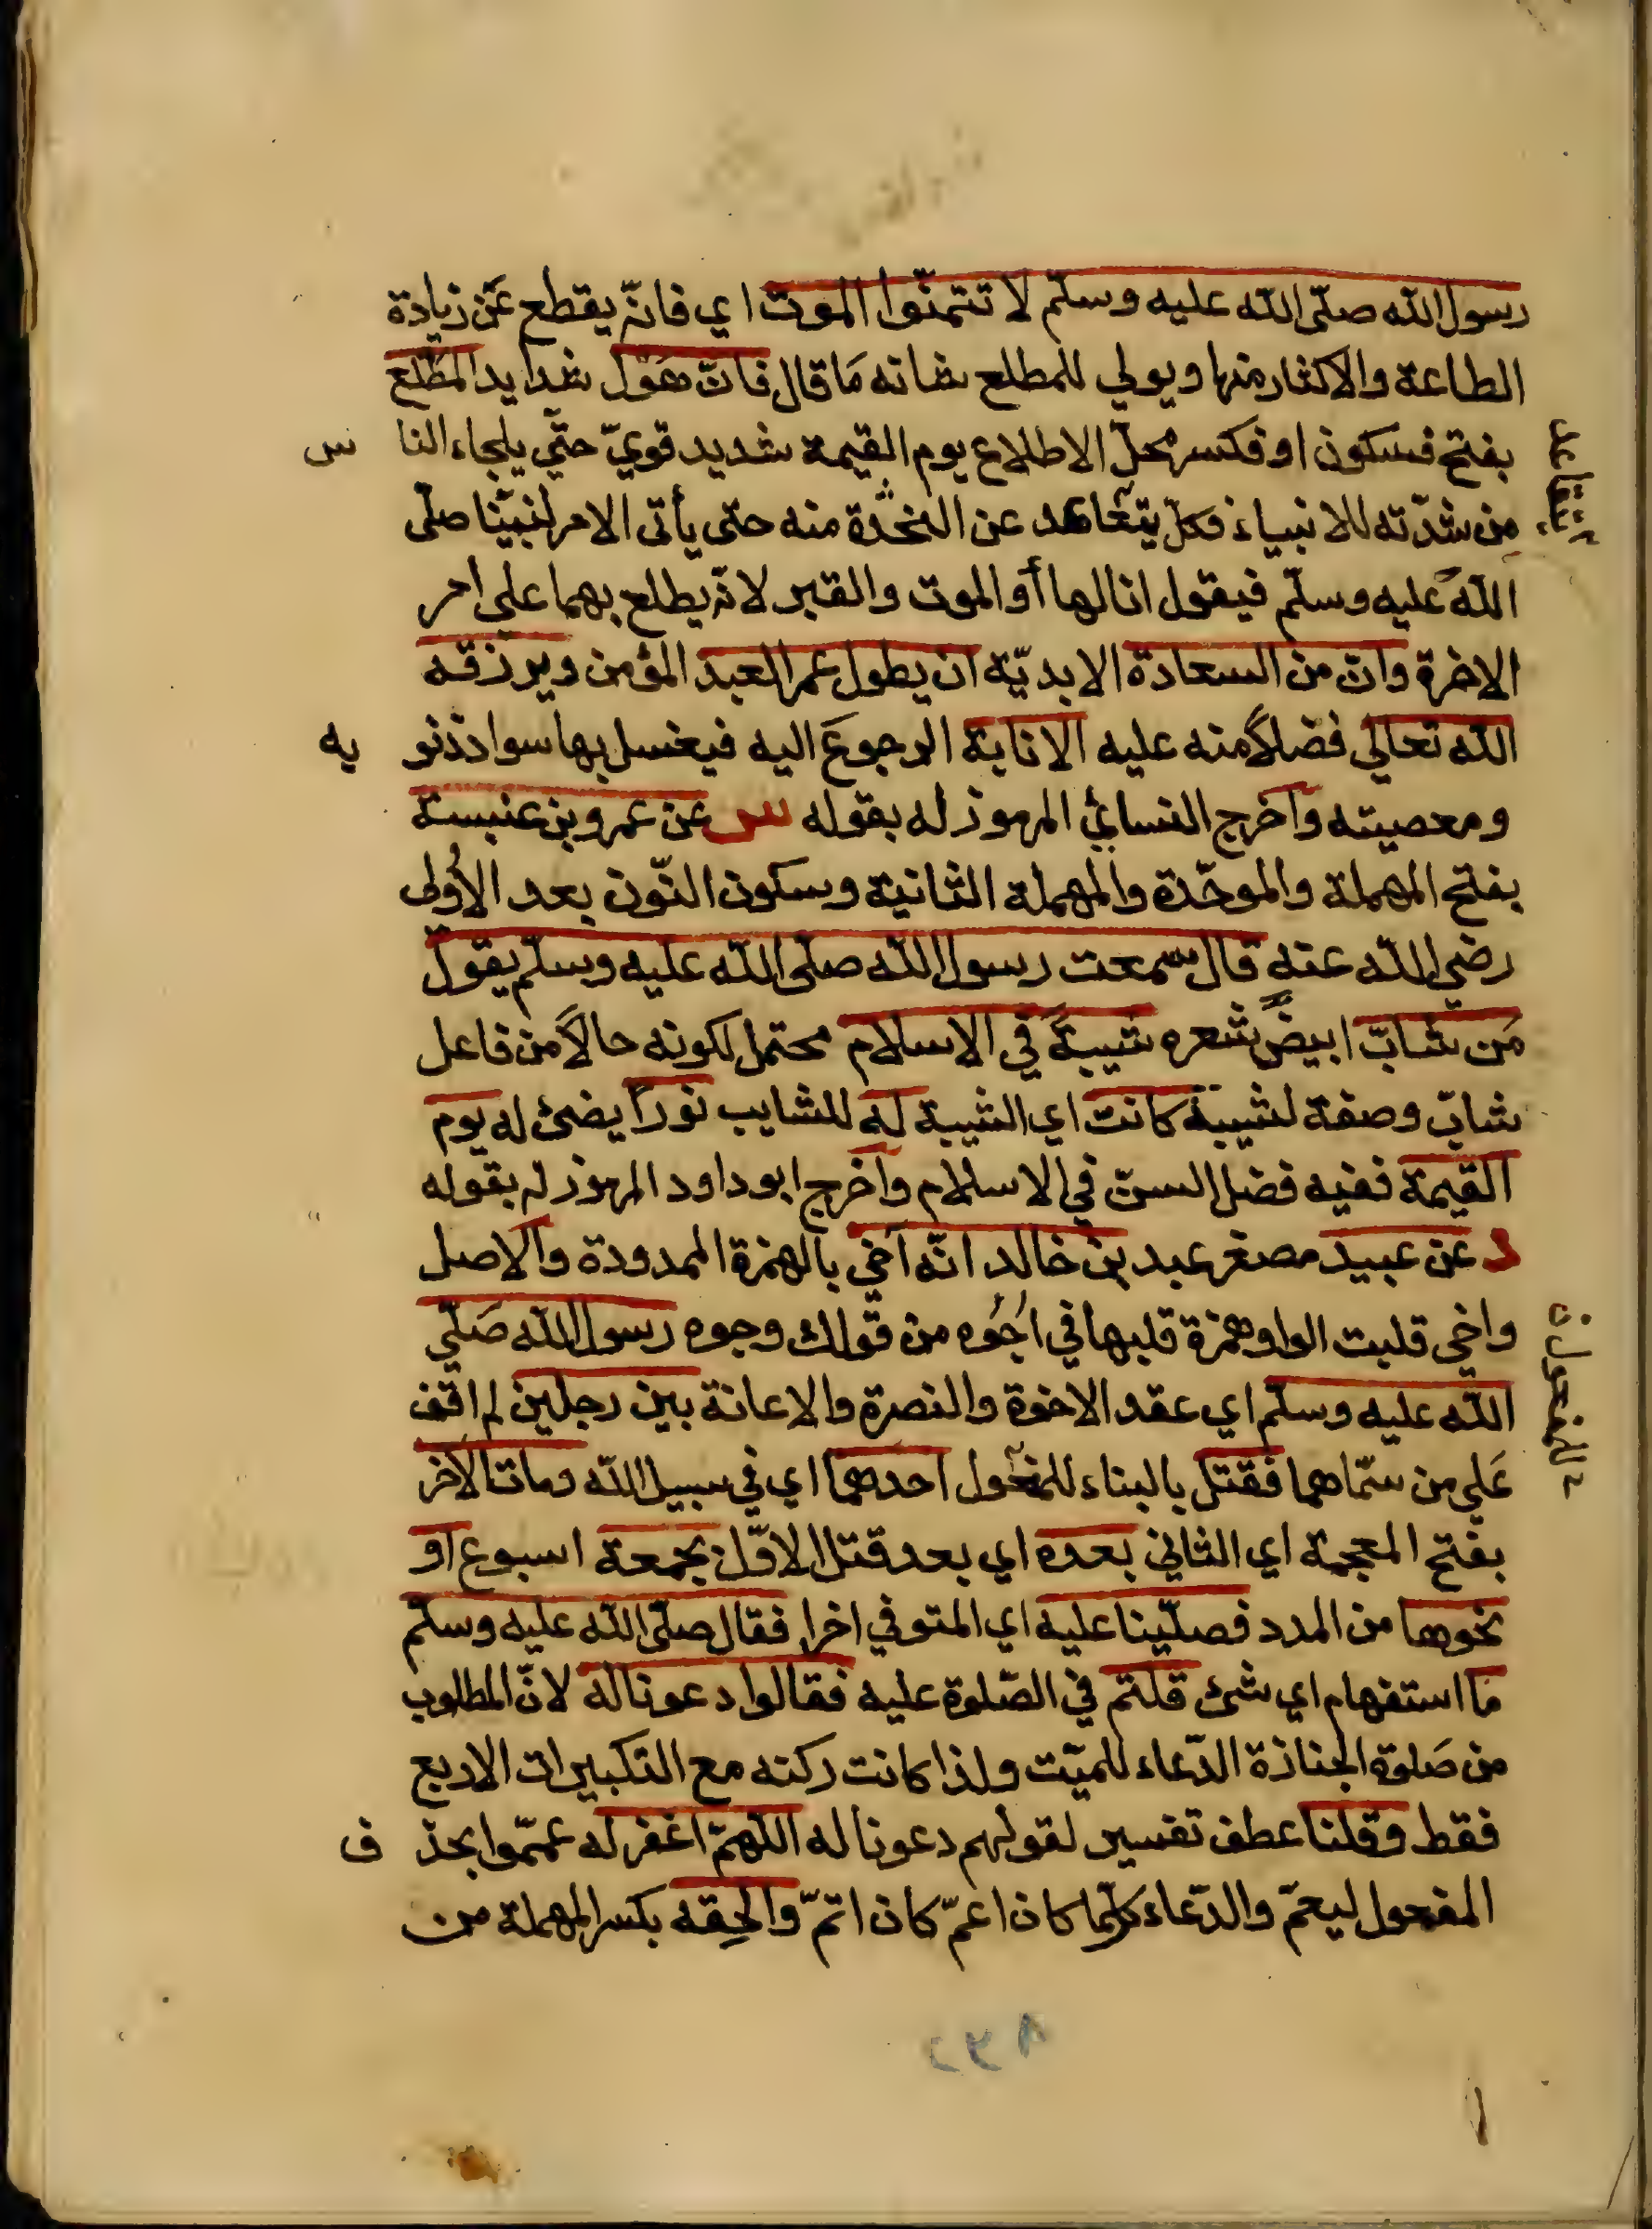 رسول الله صلّى الله عليه وسلّم لا تتمنّوا الموت اي فانّه يقطع عَن زيادة
الطاعة والاكثار منها ويولي للمطلع شانه مَا قال فانّ هَوْل شدايد المطّلع
بفتح فسكون او فكسر محلّ الاطلاع يوم القيمة شديد قويّ حتّي يلجاء الناس
من شدّته للانبياء فكلّ يتقاعد عن النجدة منه حتى يأتى الامر لنبيّنا صلّى
اللّه عليه وسلّم فيقول انا لها أو الموت والقبر لانّه يطلع بهما على امر
الاخرة وانّ من السعادة الابديّة ان يطول عمر العبد المؤمن ويرزقه
اللّه تعالي فضلاً منه عليه الانابة الرجوعَ اليه فيغسل بها سواد ذنوبه
ومعصيته واخرج النسائي المرموز له بقوله س عن عمرو بن عنبسة
بفتح المهملة والموحّدة والمهملة الثانية وسكون النّون بعد الأولى
رضي اللّه عنه قال سمعت رسول اللّه صلّى اللّه عليه وسلّم يقول
مَن شابّ ابيضّ شعره شيبةً في الاسلام محتمل لكونه حالاً من فاعل
شابّ وصفة لشيبة كانت اي الشيبة له للشايب نوراً يضئ له يوم
القيمة ففيه فضل السنّ في الاسلام واخرج ابو داود المرموز له بقوله
د عن عبيد مصغر عبد بن خالد انّه آخي بالهمزة الممدودة والاصل
واخي قلبت الواو همزة قلبها في اُجُوه من قولك وجوه رسول اللّه صَلّي
اللّه عليه وسلّم اي عقد الاخوة والنصرة والاعانة بين رجلين لم اقف
عَلي من سمّاهما فقتل بالبناء للمفعول احدهما اي في سبيل اللّه ومات الآخر
بفتح المعجمة اي الثاني بعده اي بعد قتل الاوّل بجمعة اسبوع او
نحوها من المدد فصلّينا عليه اي المتوفي اخرا فقال صلّى اللّه عليه وسلّم
مَا استفهام اي شئ قلتم في الصّلوة عليه فقالوا دعونا له لانّ المطلوب
من صَلوة الجنازة الدّعاء للميّت ولذا كانت ركنه مع التكبيرات الاربع
فقط وقلنا عطف تفسير لقولهم دعونا له اللّهمّ اغفر له عمّموا بحذف
المفعول ليعمّ والدّعاء كلّما كان اعمّ كان اتمّ والحِقه بكسر المهملة من
يتقاعد
للمفعول ن